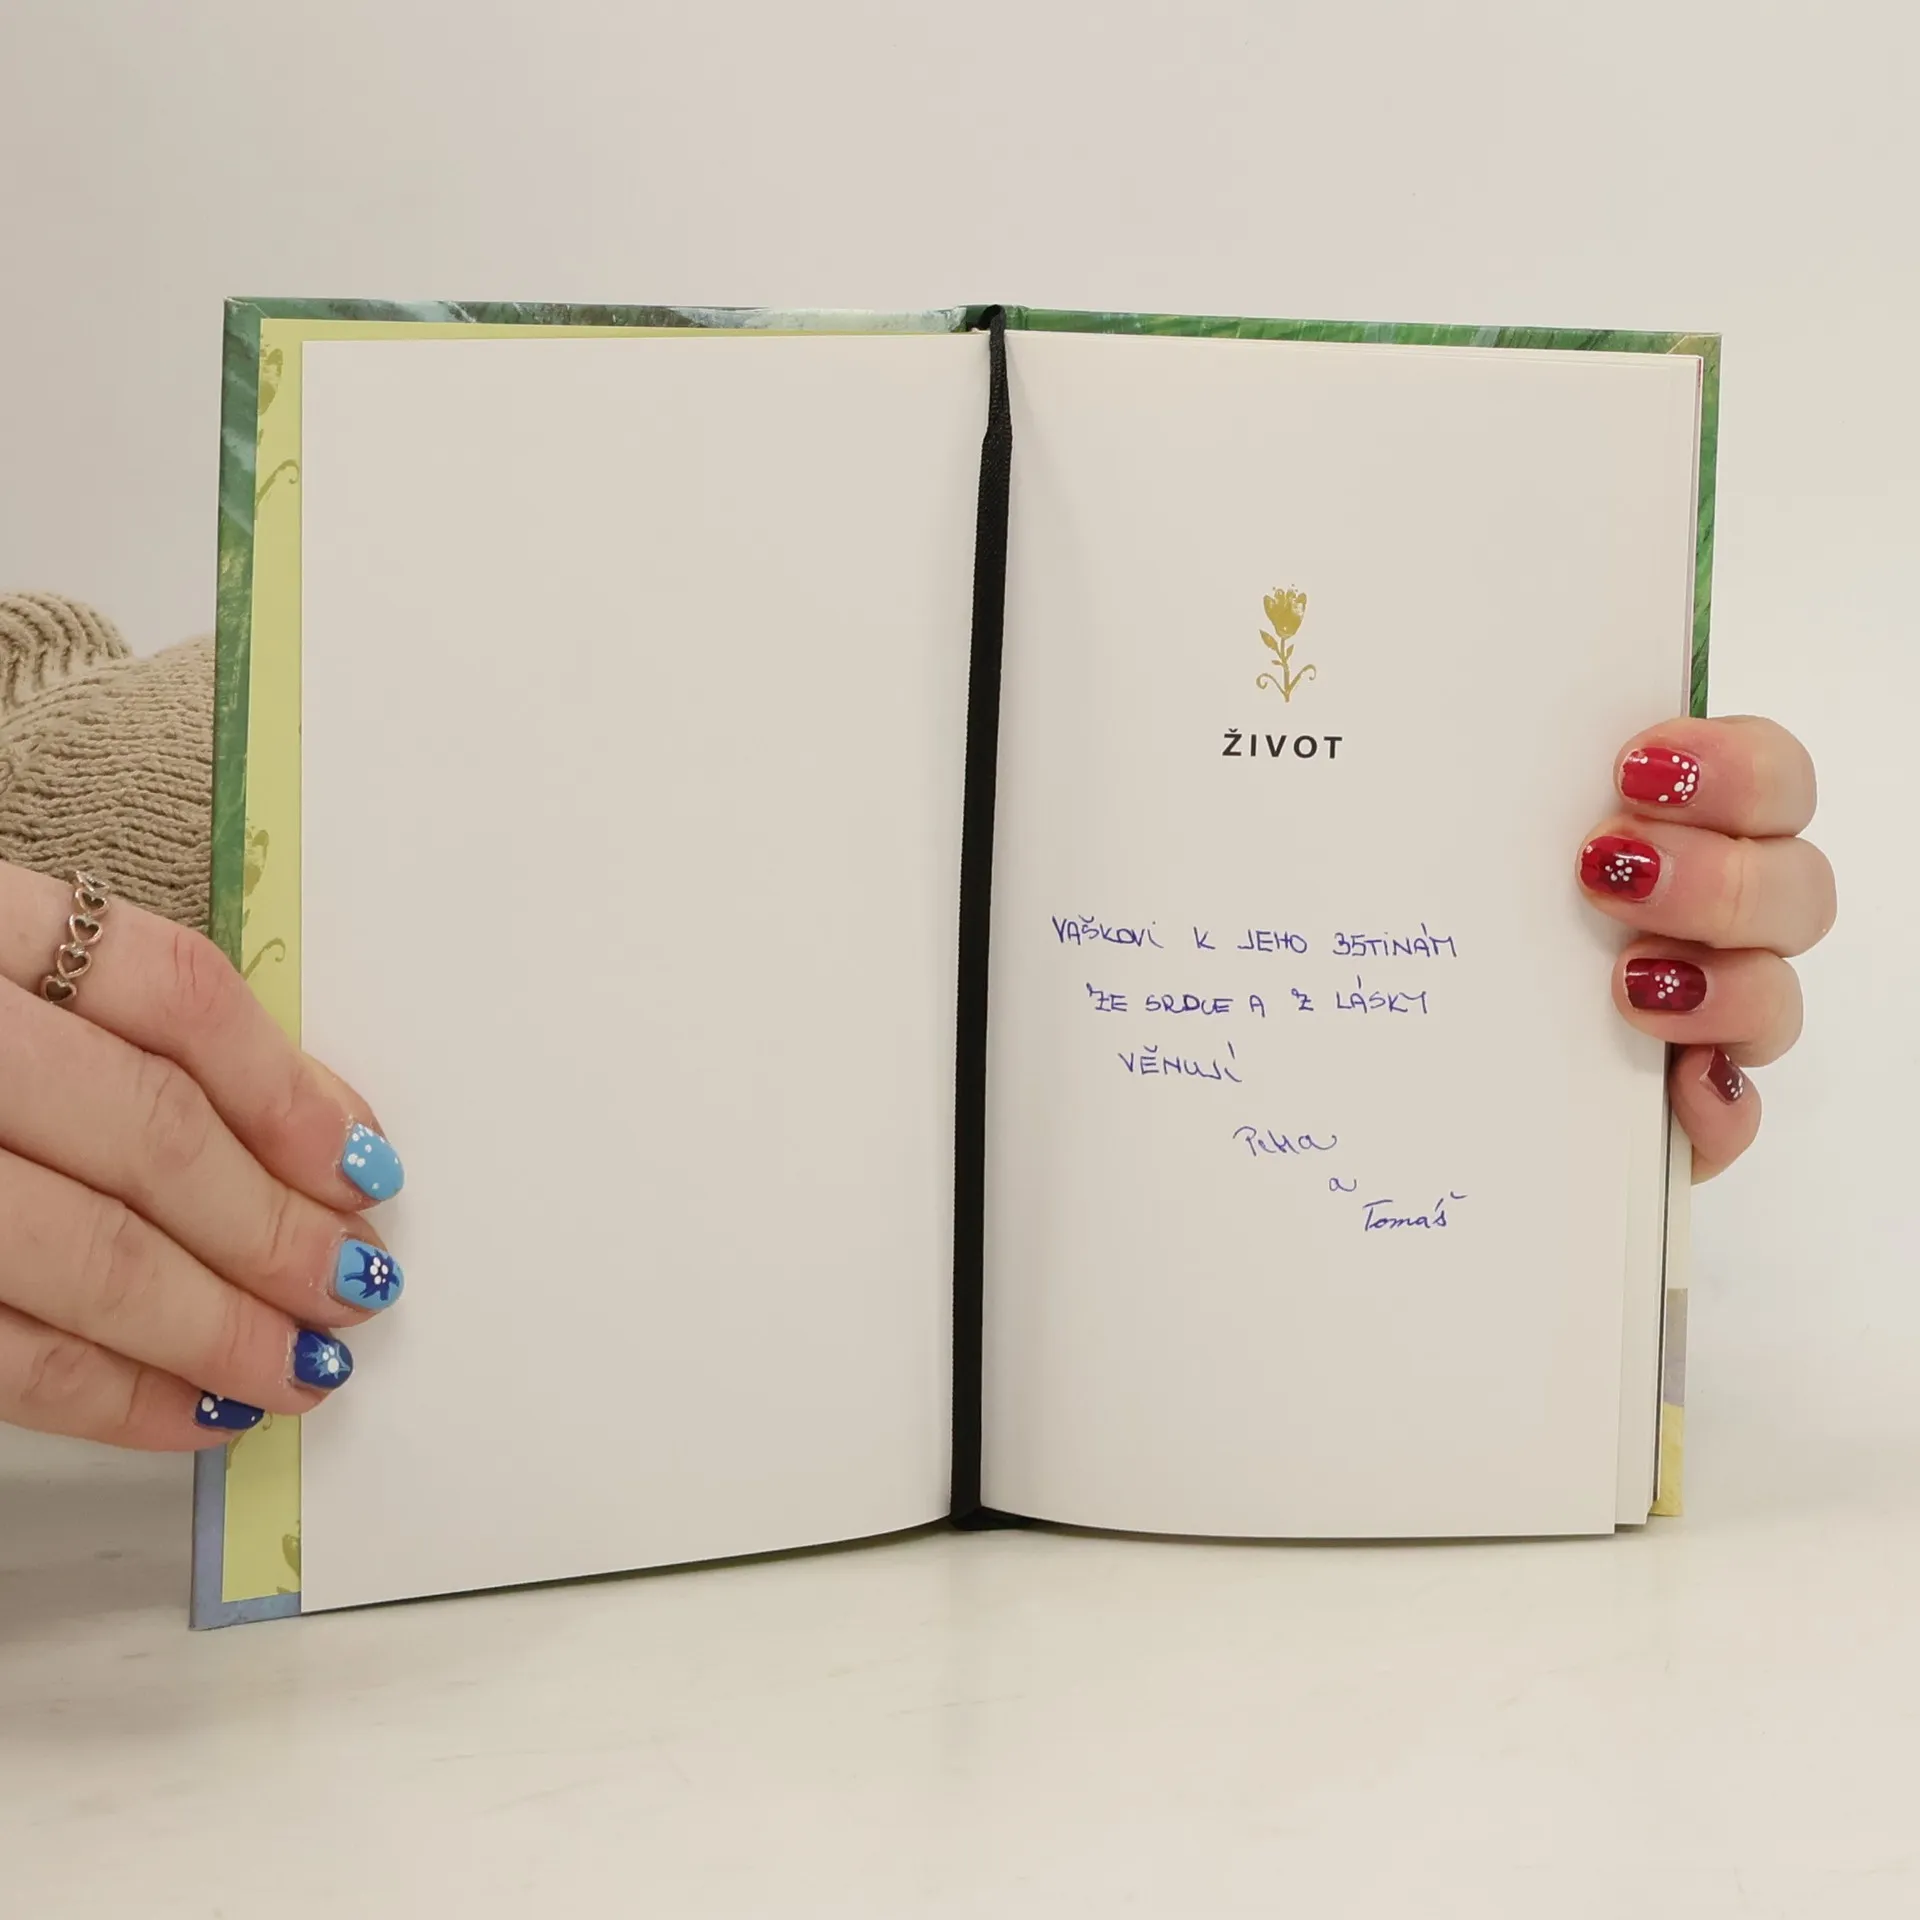 ŽIVOT
VAŠKOVI K JEHO 35TINÁM
ZE SRDCE A Z LÁSKY
VĚNUJÍ
Petra
a
Tomáš